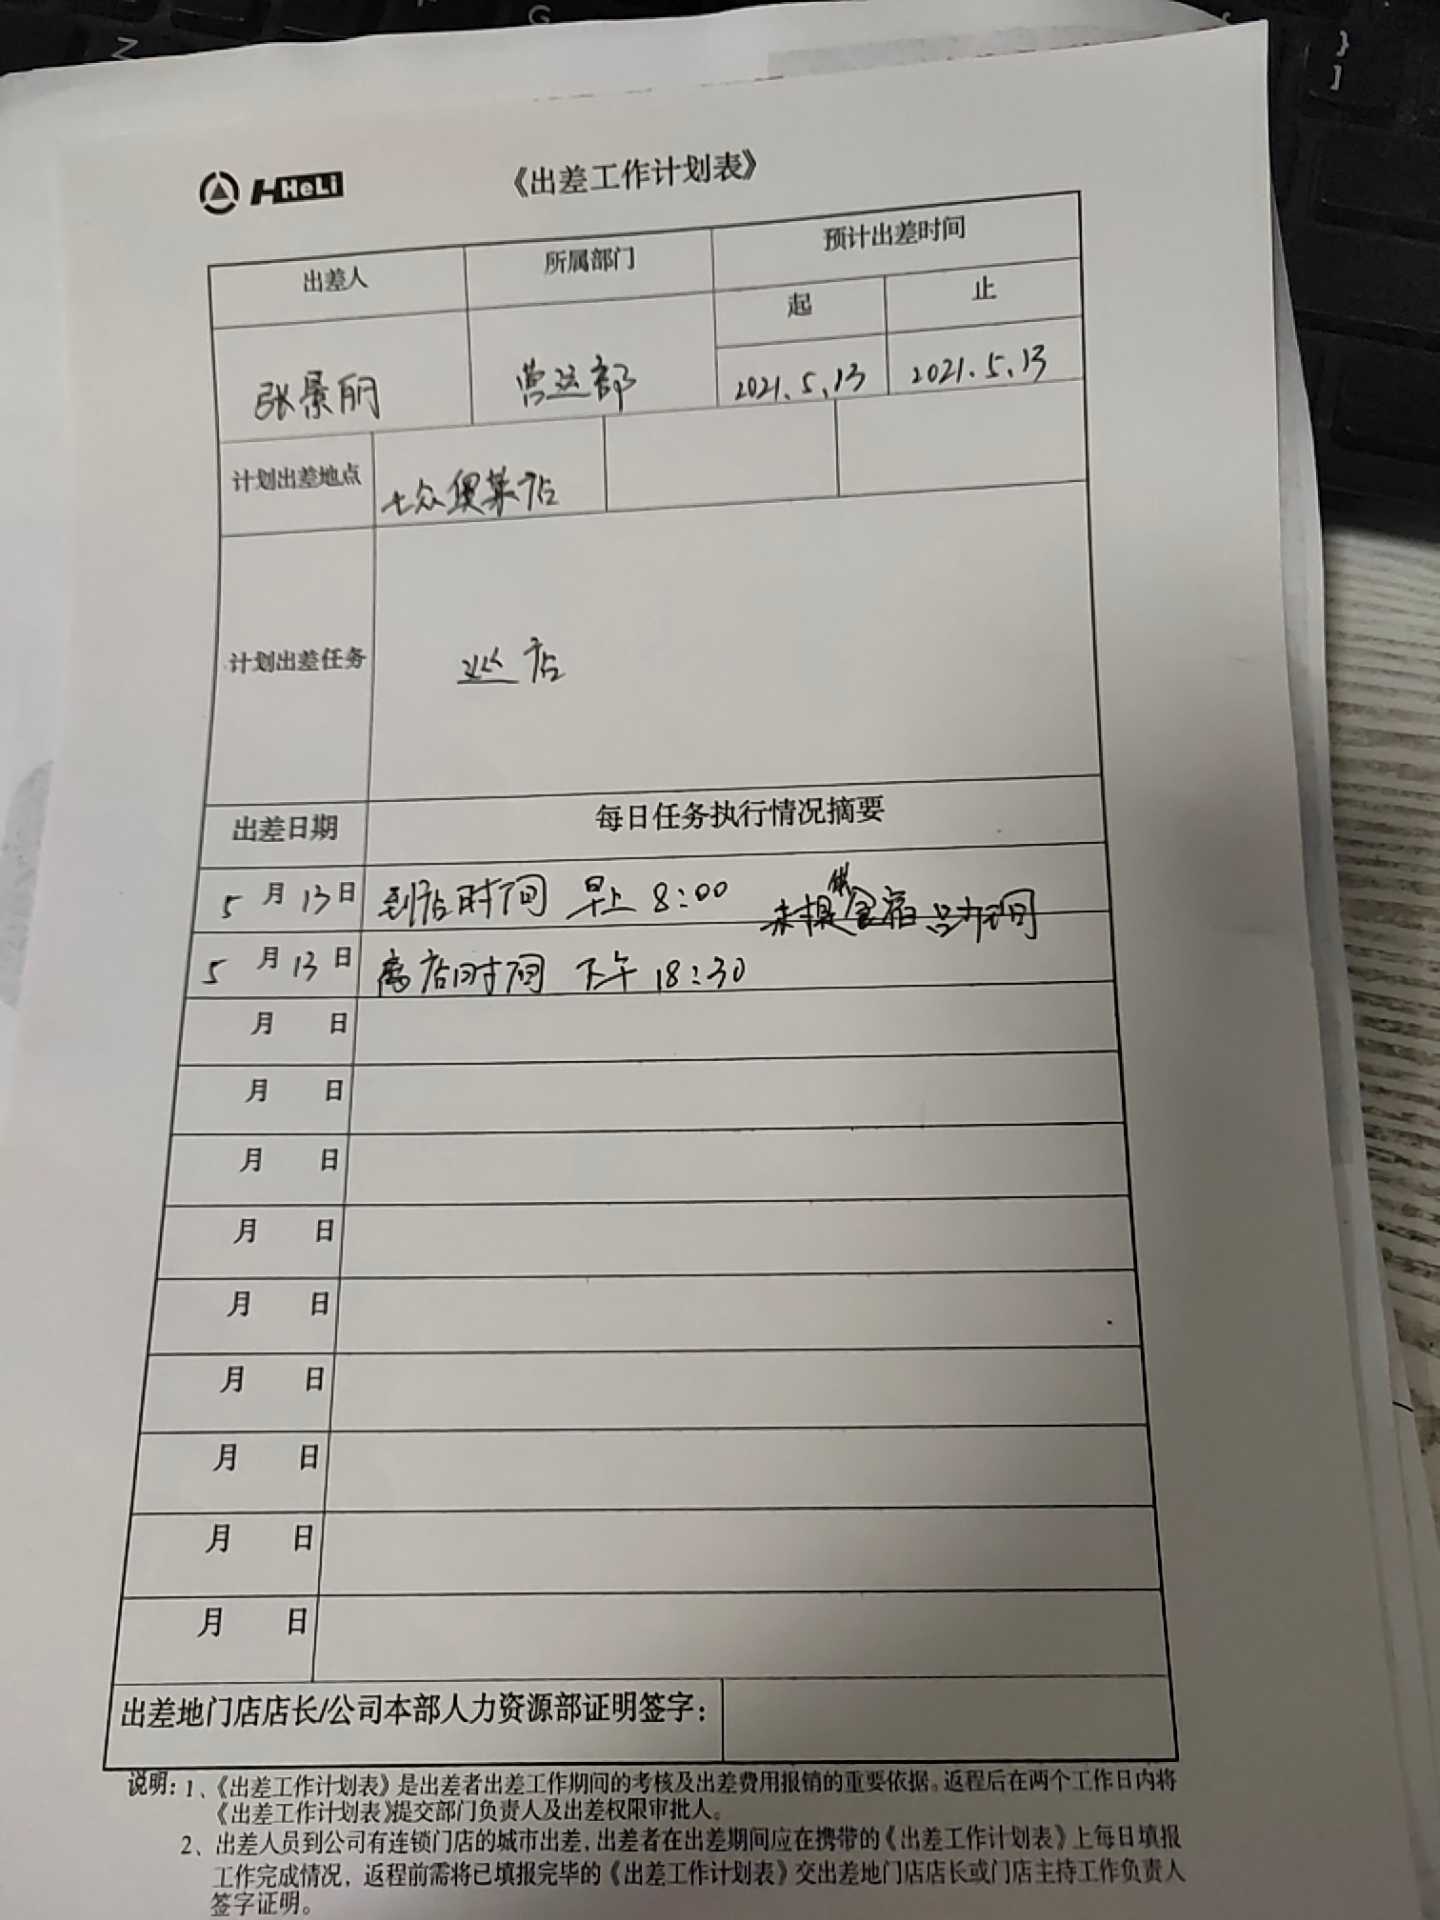 HHeLi 《出差工作计划表》
出差人 所属部门 预计出差时间
起 止
张景丽 营运部 2021.5.13 2021.5.13
计划出差地点 店
计划出差任务 巡店
出差日期 每日任务执行情况摘要
5月13日 到店时间 早上 8:00 未提供食宿
5月13日 离店时间 下午 18:30
月 日
月 日
月 日
月 日
月 日
月 日
月 日
月 日
月 日
出差地门店店长/公司本部人力资源部证明签字:
说明: 1、《出差工作计划表》是出差者出差工作期间的考核及出差费用报销的重要依据。返程后在两个工作日内将
《出差工作计划表》提交部门负责人及出差权限审批人。
2、出差人员到公司有连锁门店的城市出差, 出差者在出差期间应在携带的《出差工作计划表》上每日填报
工作完成情况, 返程前需将已填报完毕的《出差工作计划表》交出差地门店店长或门店主持工作负责人
签字证明。